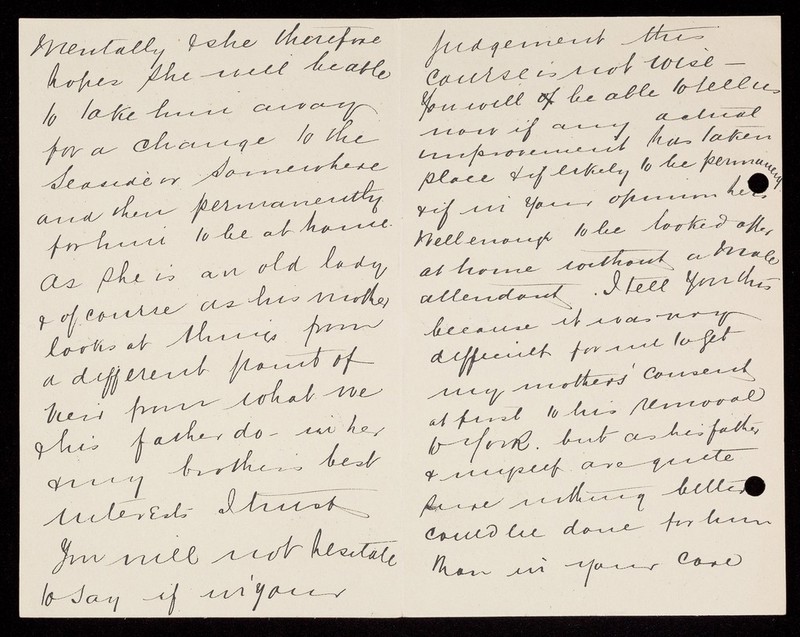 Mentally & she therefore
hopes she will be able
to take him away
for a change to the
Seaside or Somewhere
and then permanently
for him to be at home.
As she is an old lady
& of course as his mother
looks at things from
a different point of
view from what we
& his father do - in her
& my brothers best
interests I trust
You will not hesitate
to say if in your
judgement this
course is not wise -
You will be able to tell us
now if any actual
improvement has taken
place & if likely to be permanent
& if in your opinion he is
well enough to be looked after
at home without a male
attendant. I tell you this
because it was very
difficult for me to get
my mothers' consent
at first to his removal
to York. but as his father
& myself are quite
sure nothing better
could be done for him
than in your care